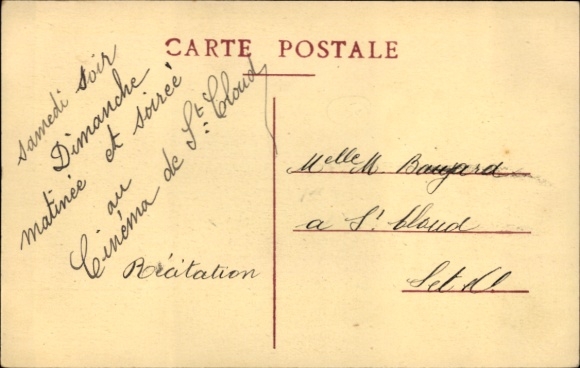 CARTE POSTALE
samedi soir
Dimanche
matinée et soirée
au
Cinéma de St. Cloud
Récitation
Melle M. Baujard
a St Cloud
S et O.